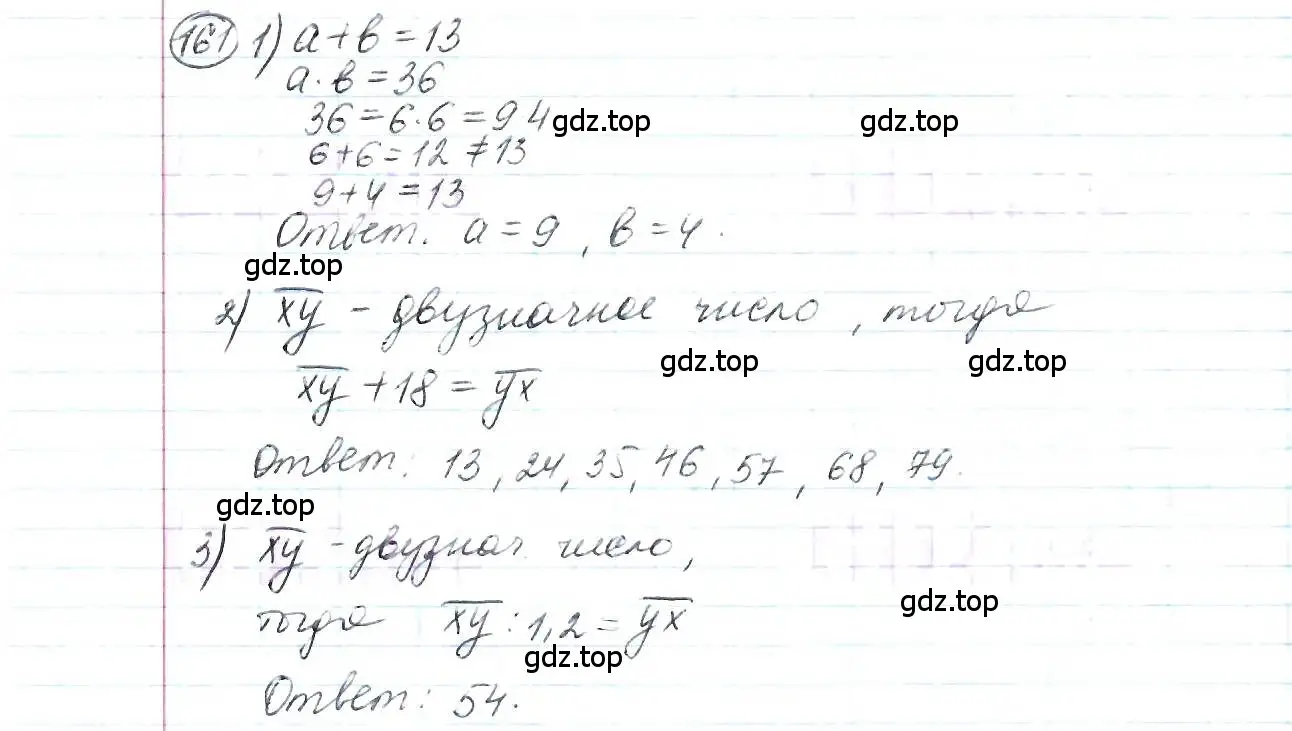 161 1) a+b=13
a·b=36
36=6·6=9 4
gdz.top gdz.top
6+6=12≠13
9+4=13
Ответ. a=9, b=4.
gdz.top
2) x̅y̅ - двузначное число, тогда
gdz.top gdz.top
x̅y̅+18=y̅x̅
Ответ: 13, 24, 35, 46, 57, 68, 79.
gdz.top
3) x̅y̅ - двузнач. число,
gdz.top
тогда x̅y̅:1,2=y̅x̅
gdz.top
Ответ: 54.